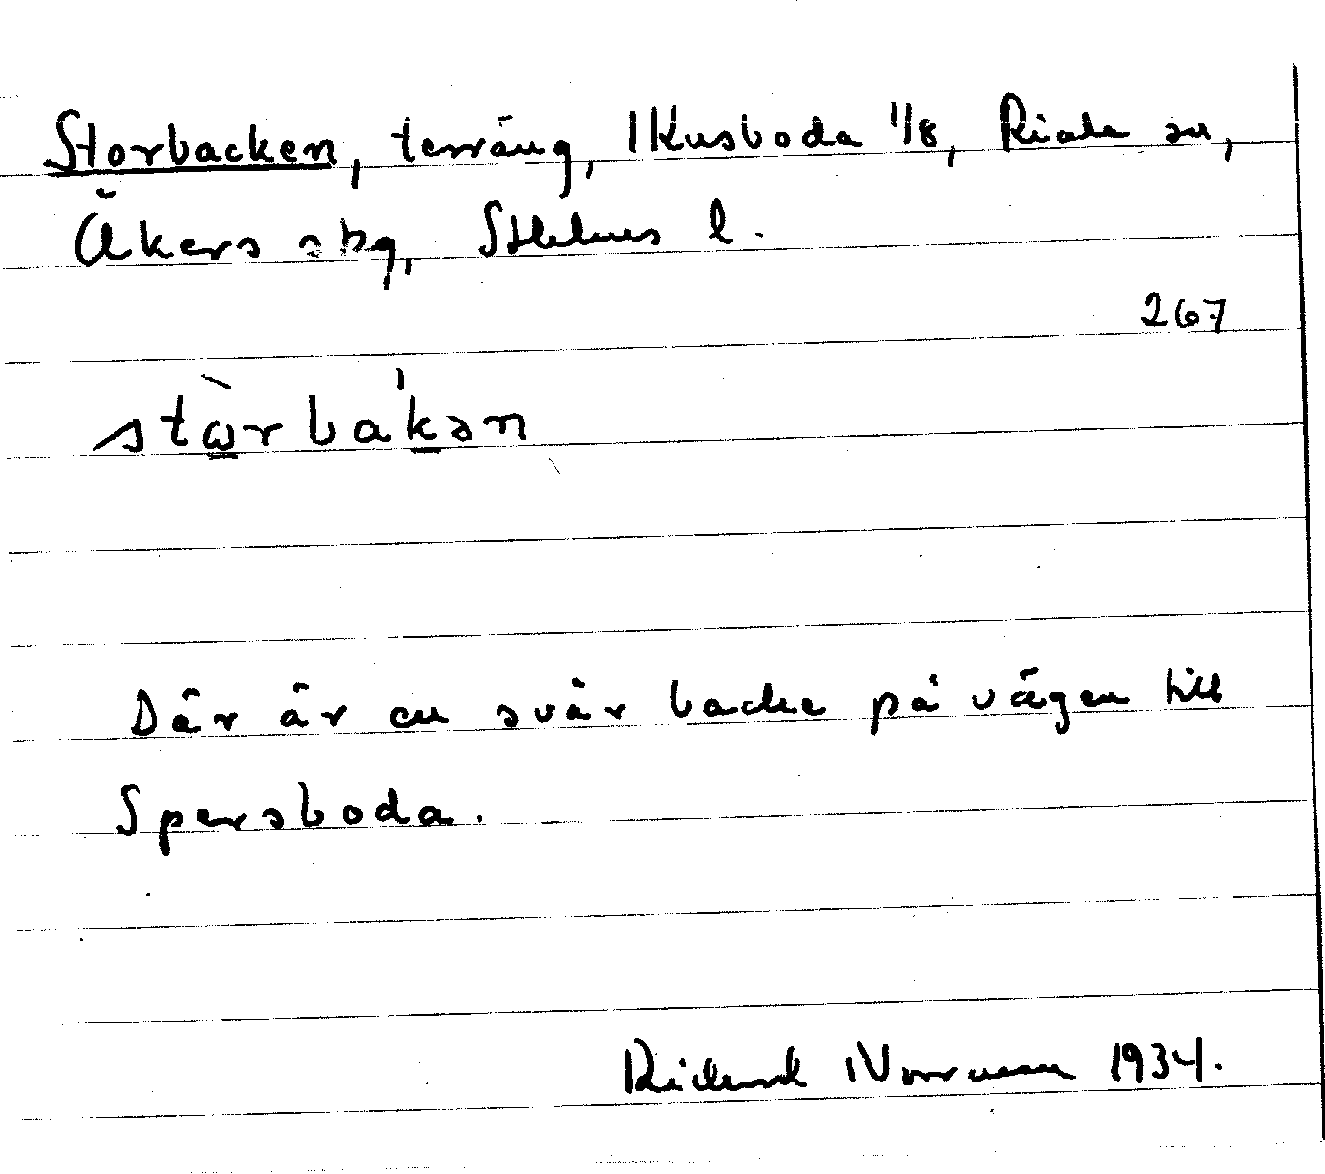 Storbacken, terräng, Kusboda 1/8, Riala sn,
Åkers skg, Sthlms l.
267
stωrbakən
Där är en svår backe på vägen till
Spersboda.
Rickard Norrman 1934.